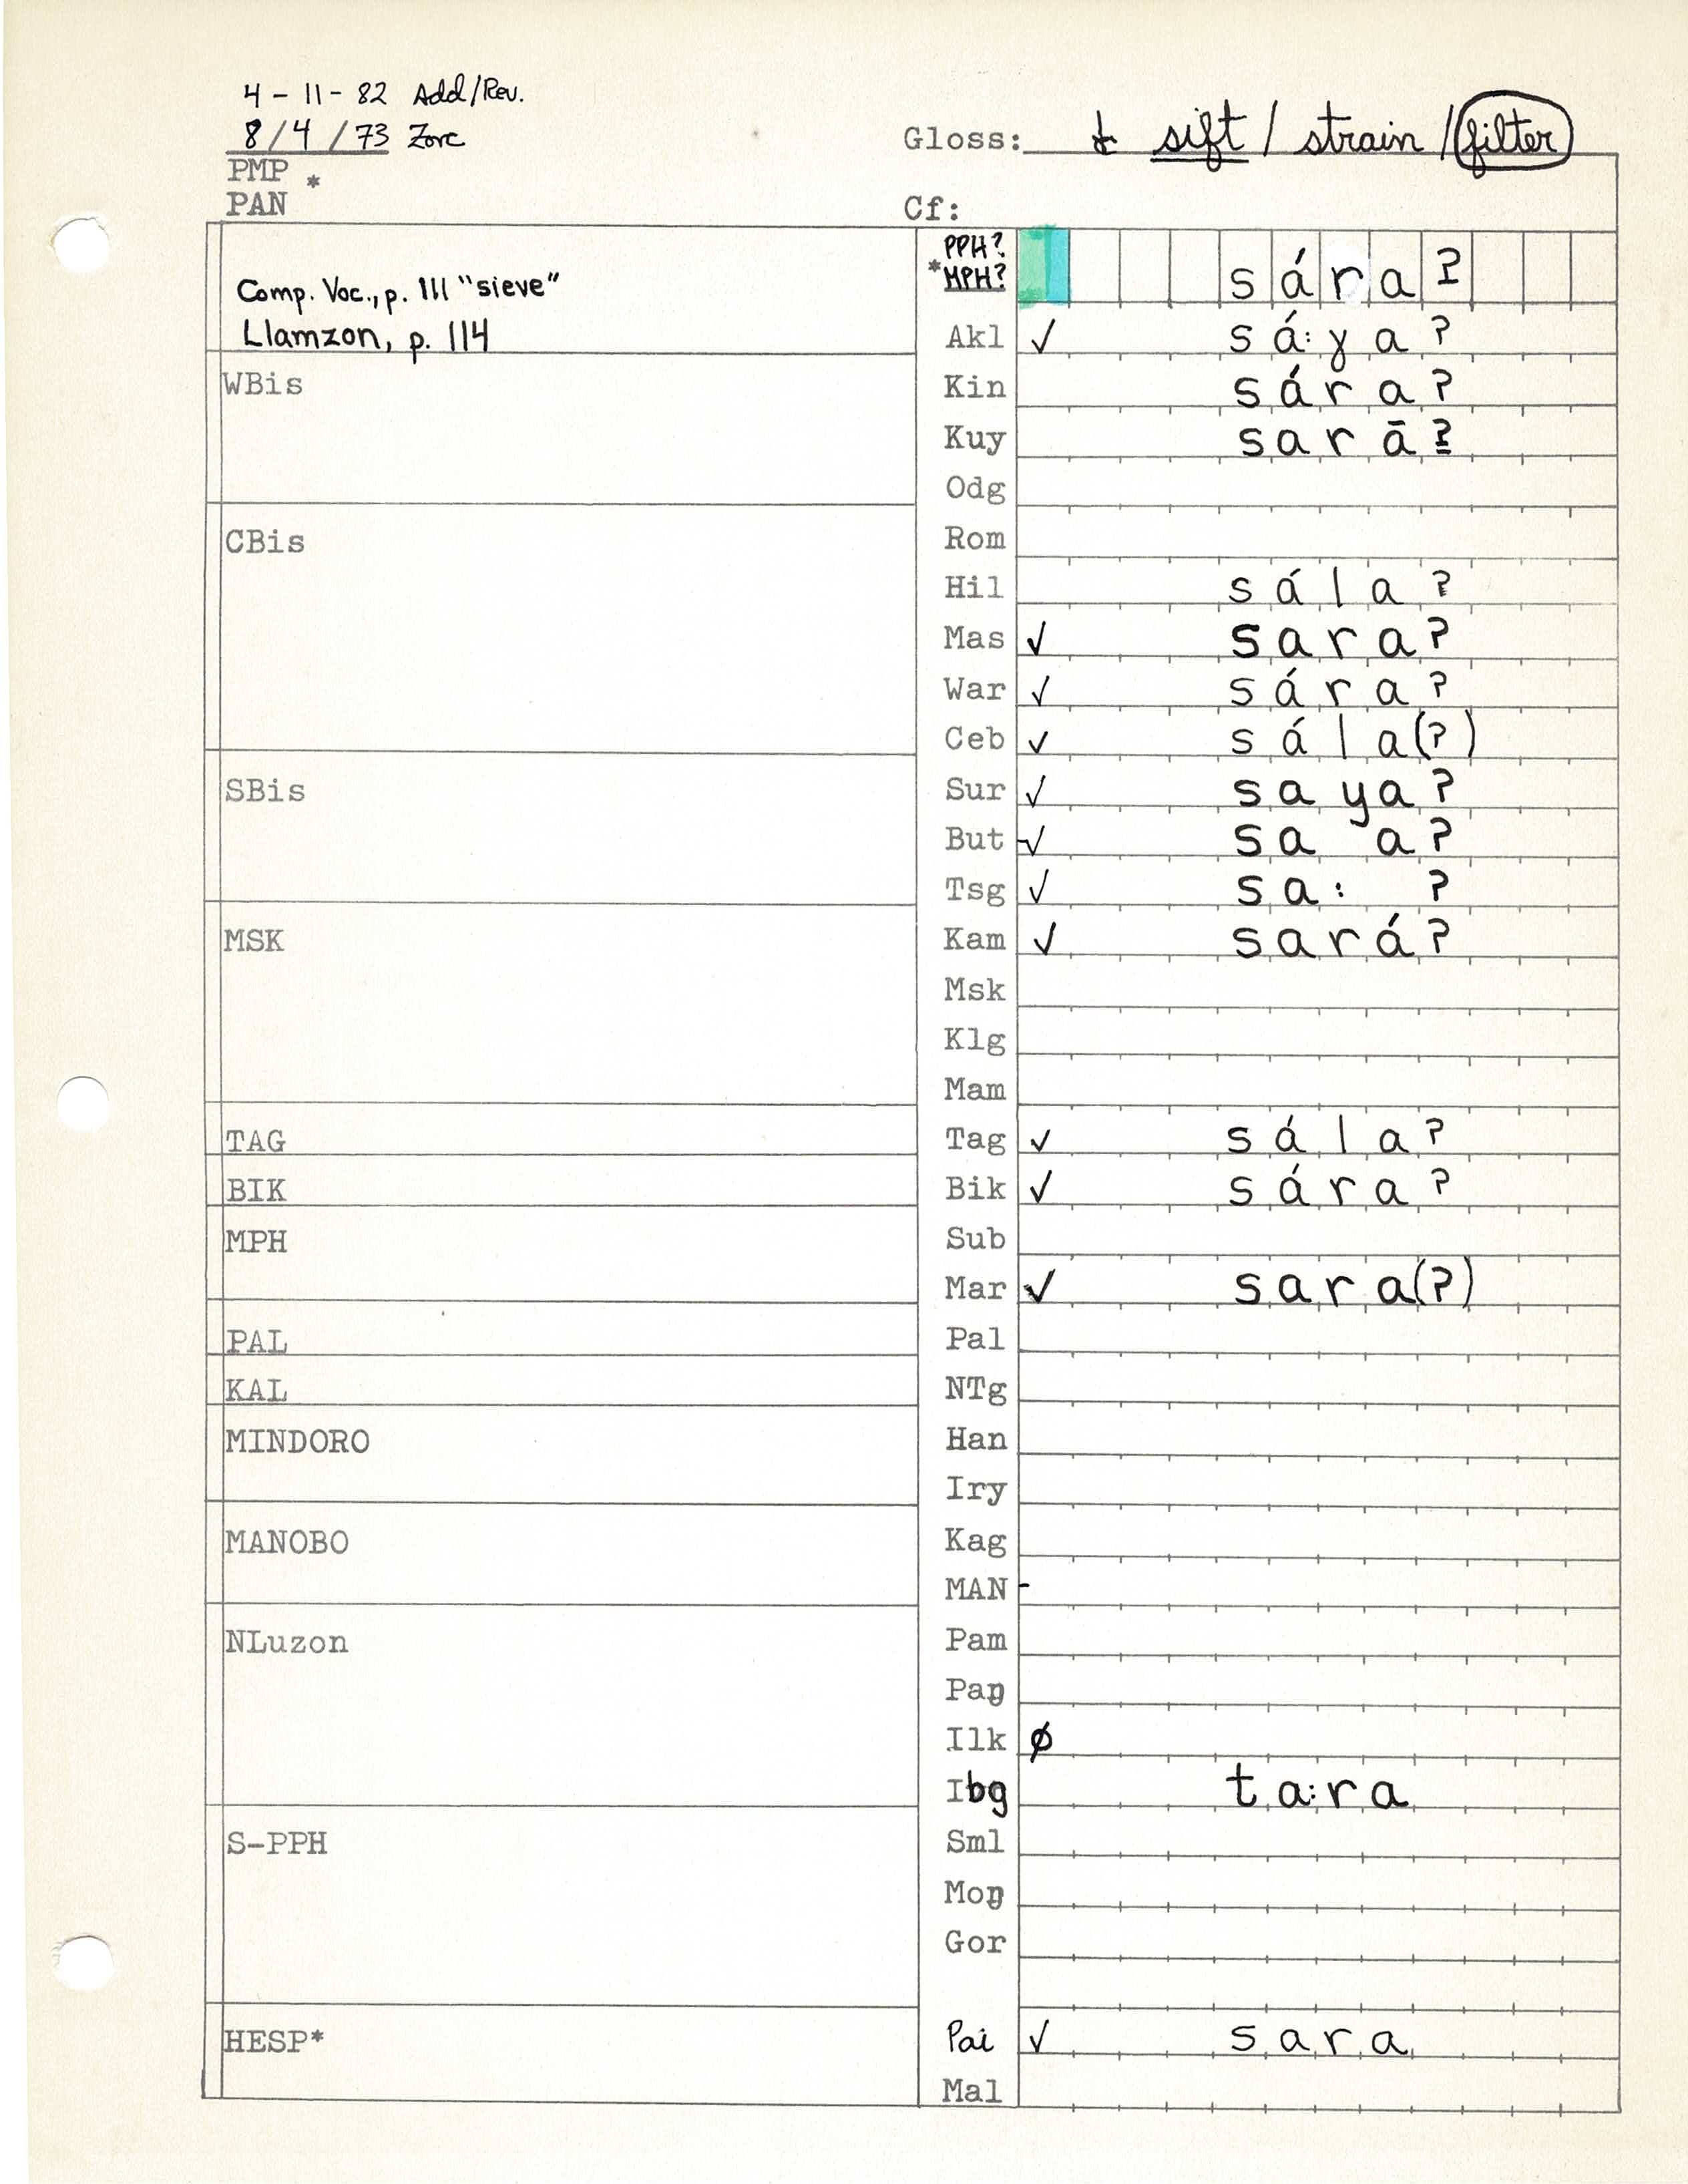 4-11-82 Add/Rev.
8/4/73 Zorc
Gloss: sift / strain / filter
PMP *
PAN
Cf:
PPH?
*MPH? sára?
Comp. Voc., p. 111 "sieve"
Llamzon, p. 114
Akl ✓ sá:ɣa?
WBis
Kin sára?
Kuy sarā?
Odg
CBis
Rom
Hil sála?
Mas ✓ sara?
War ✓ sára?
Ceb ✓ sála(?)
SBis
Sur ✓ saya?
But -✓ sa a?
Tsg ✓ sa: ?
MSK
Kam ✓ sará?
Msk
Klg
Mam
TAG
Tag ✓ sála?
BIK
Bik ✓ sára?
MPH
Sub
Mar ✓ sara(?)
PAL
Pal
KAL
NTg
MINDORO
Han
Iry
MANOBO
Kag
MAN -
NLuzon
Pam
Paŋ
Ilk ∅
Ibg ta:ra
S-PPH
Sml
Moŋ
Gor
HESP*
Pai ✓ sara
Mal